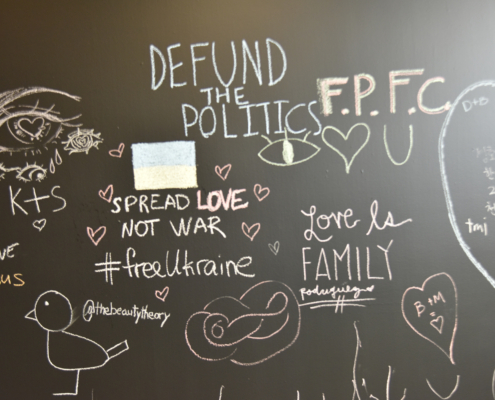 DEFUND
THE
POLITICS
F.P.F.C.
U
D+B
K+S
SPREAD LOVE
NOT WAR
#freeUkraine
Love Is
FAMILY
Rodriguez
@thebeautytheory
B+M
=
tmj